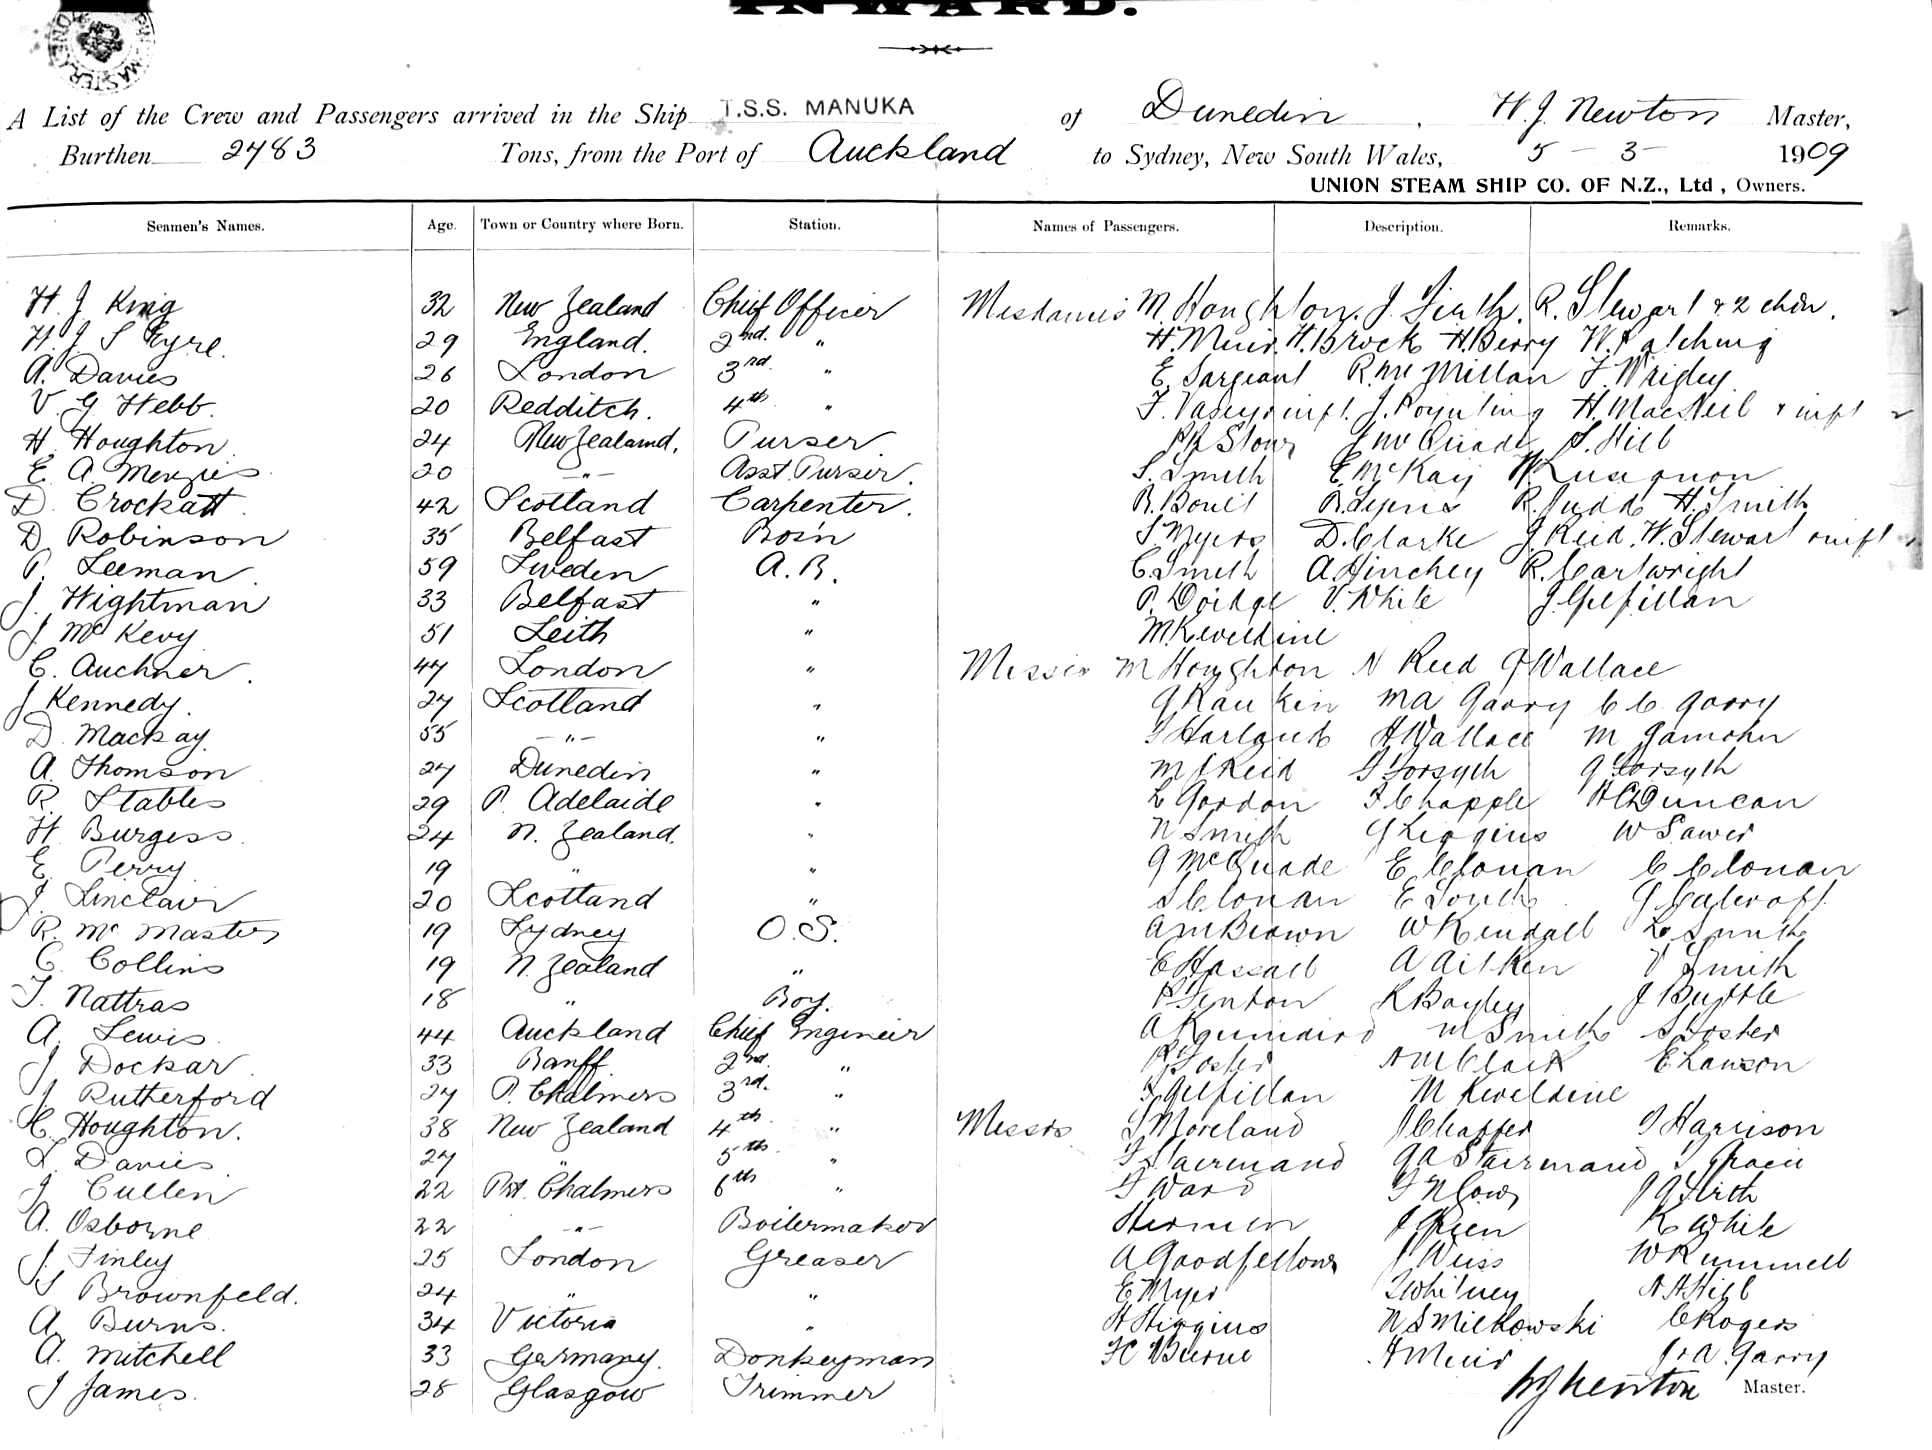 INWARD.
A List of the Crew and Passengers arrived in the Ship T.S.S. MANUKA of Dunedin, H. J. Newton Master,
Burthen 2483 Tons, from the Port of Auckland to Sydney, New South Wales, 5 - 3 - 1909
UNION STEAM SHIP CO. OF N.Z., Ltd, Owners.
Seamen's Names. Age. Town or Country where Born. Station. Names of Passengers. Description. Remarks.
H. J. King 32 New Zealand Chief Officer Mesdames M. Houghton. J. Firth. R. Stewart & 2 chdn.
H. J. S Eyre. 29 England. 2nd. " H. Muir. H. Brock H. Berry W. Patching
A. Davies 26 London 3rd. " E. Sargeant R. McMillan F. Wrigley
V. G Hebb. 20 Redditch. 4th " F. Vasey & inft. J. Poynting H. MacNeil & inft
H. Houghton. 24 New Zealand. Purser. J McQuade S. Hill
E. A. Menzies 20 -"- Asst. Purser. S. Smith E. McKay
D. Crockatt. 42 Scotland Carpenter. B. Boult R. Judd H. Smith
D. Robinson 35 Belfast Bos'n S. Myers D. Clarke J. Reid. W. Stewart & inft
P. Leeman. 59 Sweden A.B. C. Smith A Hinchey R. Cartwright
J. Wightman 33 Belfast " P. Doidge V. White J Gilfillan
J. McKevy 51 Leith " M. Keveldine
C. Auchner. 47 London " Messrs M Houghton N Reid J Wallace
J Kennedy. 27 Scotland " J Rankin M A Garry C C. Garry
D. Mackay. 55 -"- " H Wallace M
A. Thomson 27 Dunedin " M J Reid J Forsyth J Forsyth
R. Stables 29 P. Adelaide " L Gordon F Chapple H C Duncan
H Burgess. 24 N. Zealand. " N Smith J Higgins W Sawer
E. Perry. 19 " " J McQuade E Clonan C Clonan
J. Sinclair 20 Scotland " S Clonan E South J Calcroft
R. McMaster 19 Sydney O.S. A M Brown W Kendall L Smith
C. Collins 19 N. Zealand " E Hassall A Aitken V Smith
T. Nattras 18 " Boy. P Fenton R Bayley J Buttle
A. Lewis. 44 Auckland Chief Engineer M Smith S Foster
J Dockar. 33 Banff 2nd. " P Foster A M Clark E Lawson
J Rutherford 27 P. Chalmers 3rd. " F Gilfillan M Keveldine
C. Houghton. 38 New Zealand 4th " Messrs. S Moreland J Chaffer S Harrison
L. Davies. 27 " 5th " F Stairmand G A Stairmand
J Cullen 22 Prt. Chalmers 6th " F Ward J G Firth
A. Osborne 22 -"- Boilermaker K White
J. Finley 25 London Greaser A Goodfellow J Weiss W Rummell
S Brownfeld. 24 " " E Myer Whitney A A Hill
A Burns. 34 Victoria " H Higgins N S Milkowski C Rogers
A. Mitchell 33 Germany. Donkeyman H C Burne H Muir J & A. Garry
J James. 28 Glasgow Trimmer H J Newton Master.